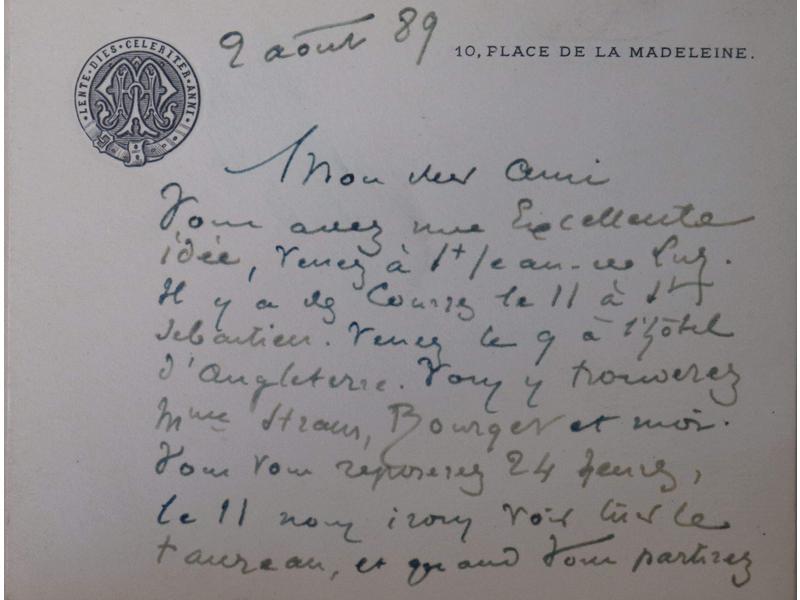 LENTE·DIES·CELERITER·ANNI
2 août 89
10, PLACE DE LA MADELEINE.
Mon cher ami
Vous avez une Excellente
idée, Venez à St Jean-de Luz.
Il y a des Courses le 11 à St
Sebastien. Venez le 9 à l'hôtel
d'Angleterre. Vous y trouverez
Mme Straus, Bourget et moi.
Vous vous reposerez 24 heures,
le 11 nous irons voir tuer le
taureau, et quand Vous partirez